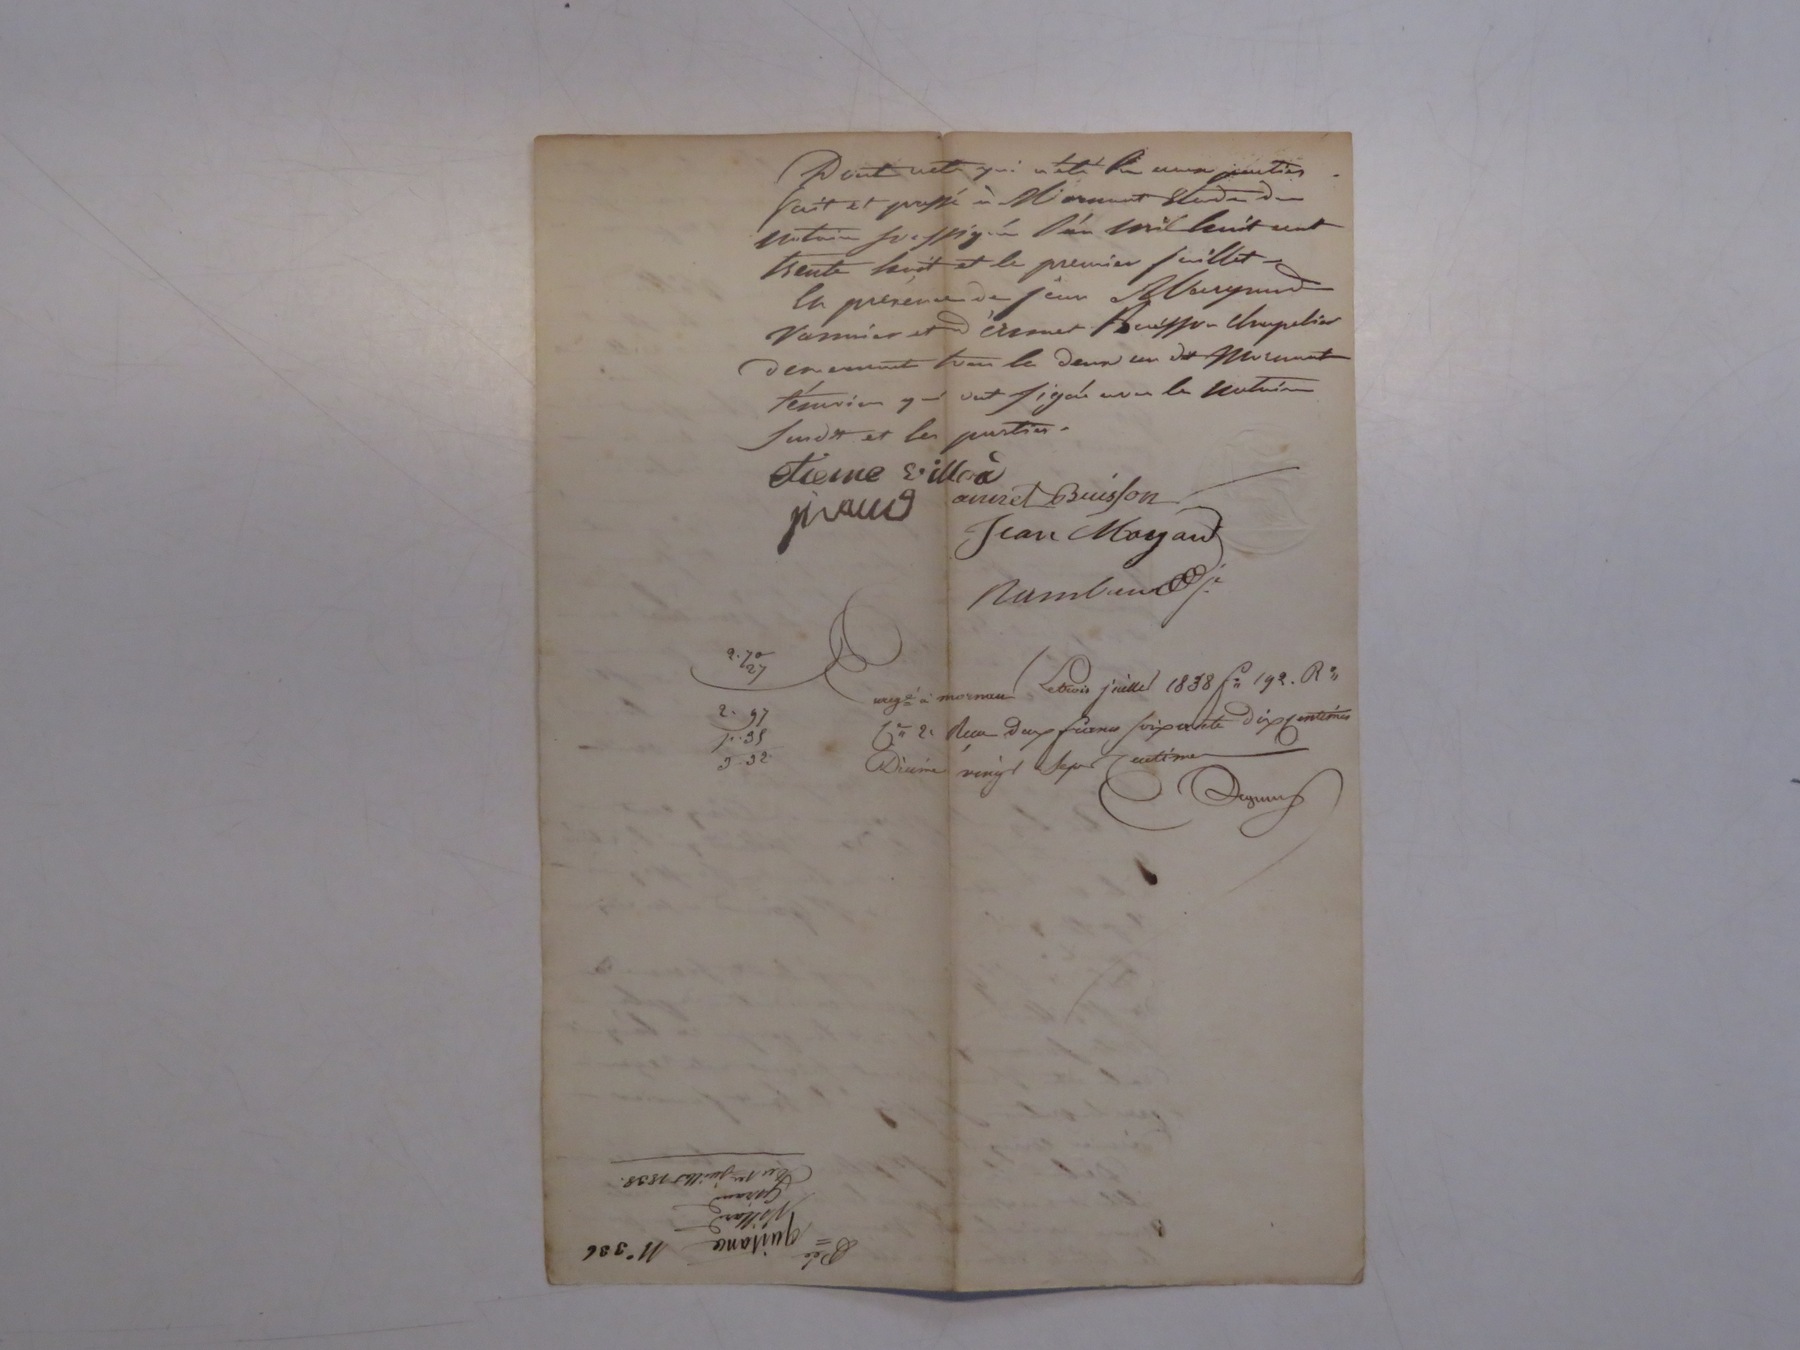 Dont acte qui a été lu aux parties
fait et passé à Mornant Etude du
notaire soussigné l'an mil huit cent
trente huit et le premier juillet
En présence de jean
Vannier et d'ennet Buisson chapelier
demeurant tous le deux au dt Mornant
témoins qui ont signés avec le notaire
susdt et les parties.
etiene villar
giraud
annet Buisson
Jean
Rambaud
2.70
27
2.97
3.32
à mornant Letrois juillet 1838 fo 192. Ro
Ce 2. Recu deux francs soixante dix centimes
Dixime vingt sept centimes
No 336
quitance
Villard
Giraud
Du 1er juillet 1838.